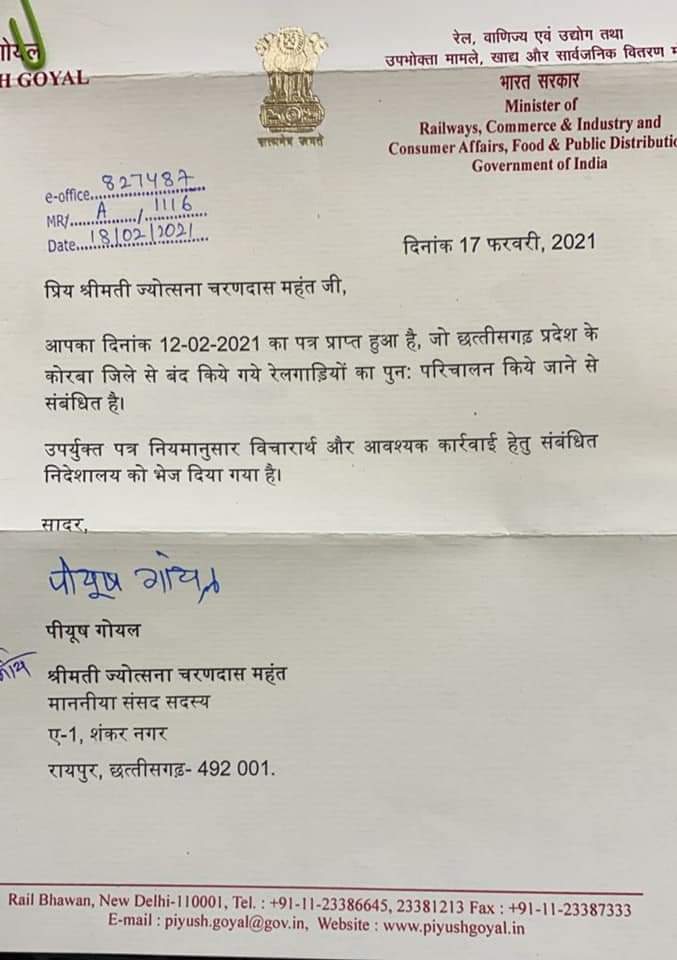 गोयल
H GOYAL
सत्यमेव जयते
रेल, वाणिज्य एवं उद्योग तथा
उपभोक्ता मामले, खाद्य और सार्वजनिक वितरण
भारत सरकार
Minister of
Railways, Commerce & Industry and
Consumer Affairs, Food & Public Distributio
Government of India
e-office....827487
MR/....A..../....1116
Date....18/02/2021
दिनांक 17 फरवरी, 2021
प्रिय श्रीमती ज्योत्सना चरणदास महंत जी,
आपका दिनांक 12-02-2021 का पत्र प्राप्त हुआ है, जो छत्तीसगढ़ प्रदेश के
कोरबा जिले से बंद किये गये रेलगाड़ियों का पुन: परिचालन किये जाने से
संबंधित है।
उपर्युक्त पत्र नियमानुसार विचारार्थ और आवश्यक कार्रवाई हेतु संबंधित
निदेशालय को भेज दिया गया है।
सादर,
पीयूष गोयल
पीयूष गोयल
श्रीमती ज्योत्सना चरणदास महंत
माननीया संसद सदस्य
ए-1, शंकर नगर
रायपुर, छत्तीसगढ़- 492 001.
Rail Bhawan, New Delhi-110001, Tel. : +91-11-23386645, 23381213 Fax : +91-11-23387333
E-mail : piyush.goyal@gov.in, Website : www.piyushgoyal.in